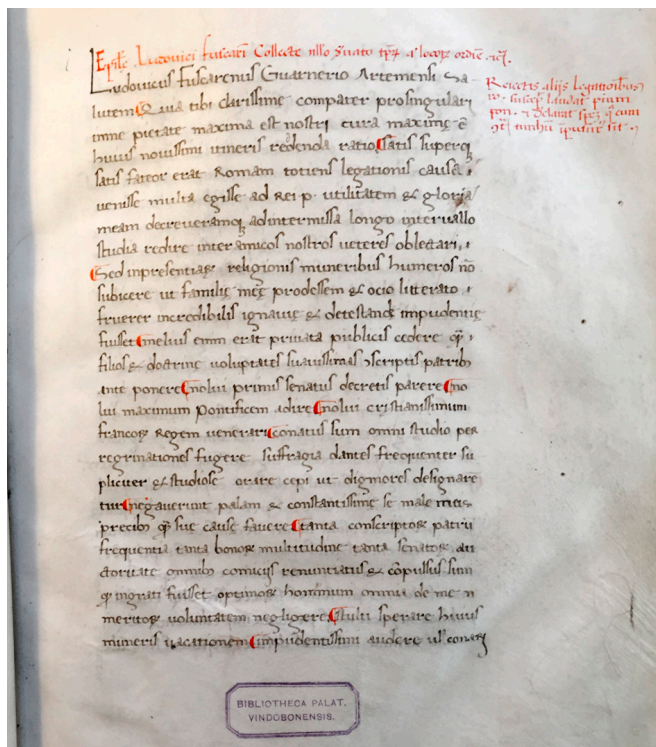 Epistole Ludovici fuscareni Collecte nullo servato temporum aut locorum ordine
Ludovicus Fuscarenus Guarnerio Artemensi Sa-
lutem Quia tibi clarissime compater pro singulari
inme pietate maxima est nostri cura maxime ē
huius novissimi itineris reddenda ratio. Satis superq
satis fateor erat Romam totiens legationis causa
venisse multa egisse ad Rei p. utilitatem & gloriā
meam decreveramq adintermissa longo intervallo
studia redire inter amicos nostros veteres oblectari
Sed inpresentiaꝝ religionis muneribus humeros nō
subicere ut familię męę prodessem & ocio litterato
fruerer incredibilis ignavię & detestandę impudentię
fuisset melius enim erat privata publicis cedere qȝ
filios & doctrinę voluptates suavissimas ɔscriptis patribȝ
ante ponere nolui primis senatus decretis parere no
lui maximum Pontificem adire nolui cristianissimum
francoꝝ Regem venerari conatus sum omni studio per
regrinationes fugere suffragia dantes frequenter su
pliciter & studiose orare cepi ut digniores designare
tur negaverunt palam & constantissime se male meis
precibȝ qȝ suę causę favere tanta conscriptoꝝ patrū
frequentia tanta bonoꝝ multitudine tanta senatoꝝ au
ctoritate omnibȝ comicijs renuntiatus & cōpulsus sum
qȝ ingrati fuisset optimoꝝ hominum omnia de me ń
meritoꝝ voluntatem negligere Stulti sperare huius
muneris vacationem impudentissimi audere vel conarj
Reiectis alijs legationibus
suscep laudat pium
pon. & declarat
BIBLIOTHECA PALAT.
VINDOBONENSIS.